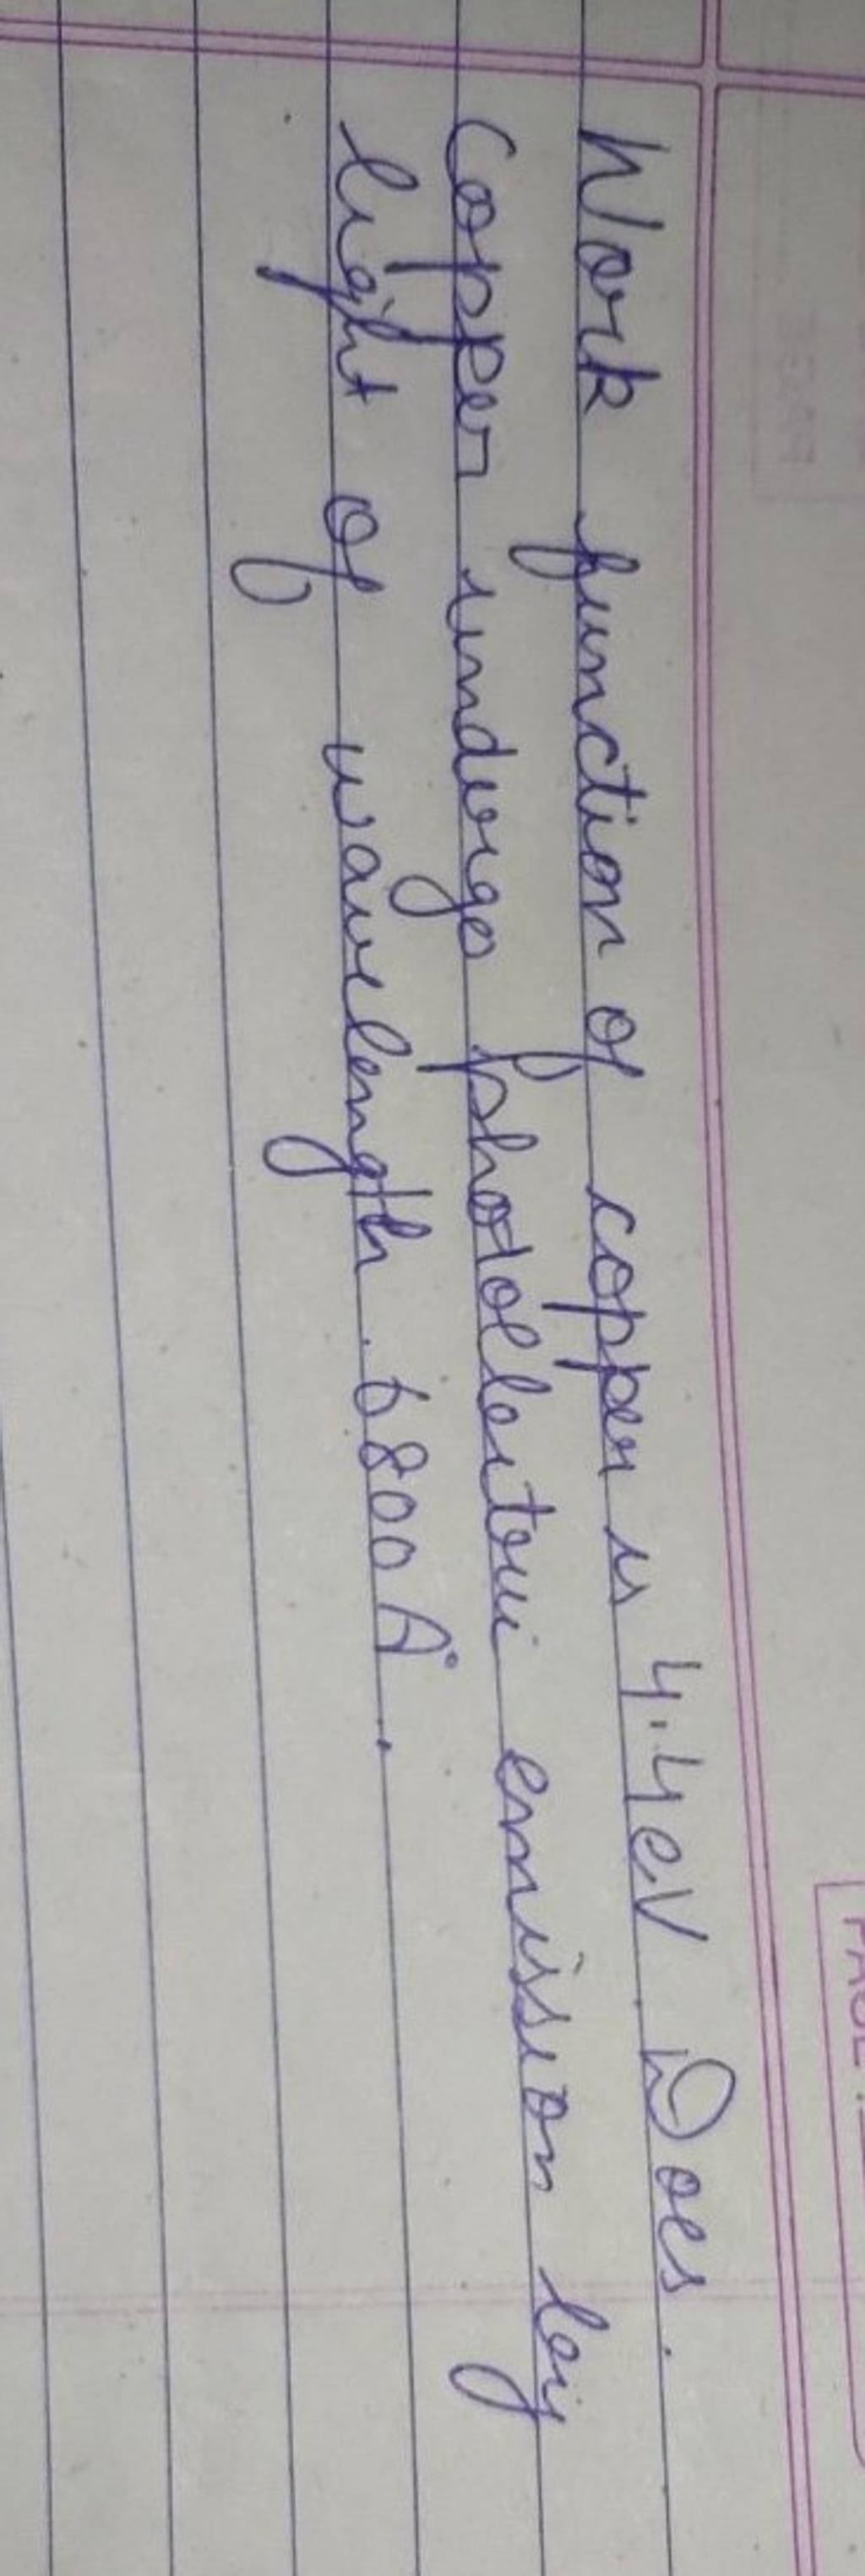 Work function of copper is 4.4eV. Does.
Copper undergo photoelectric emission by
light of wavelength 6800 A°.